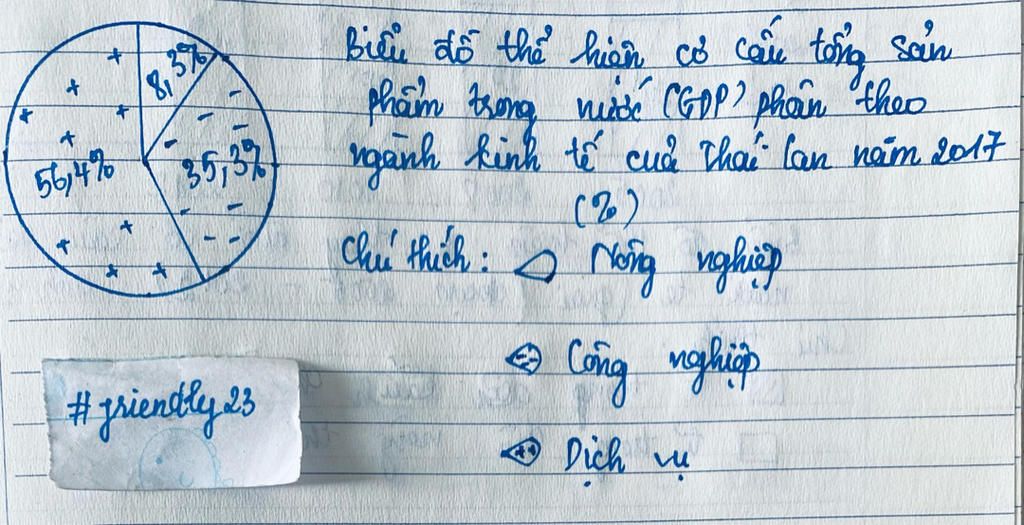 8,3%
35,3%
56,4%
Biểu đồ thể hiện cơ cấu tổng sản
phẩm trong nước (GDP) phân theo
ngành kinh tế của Thái Lan năm 2017
(%)
Chú thích: Nông nghiệp
Công nghiệp
Dịch vụ
#friendly23